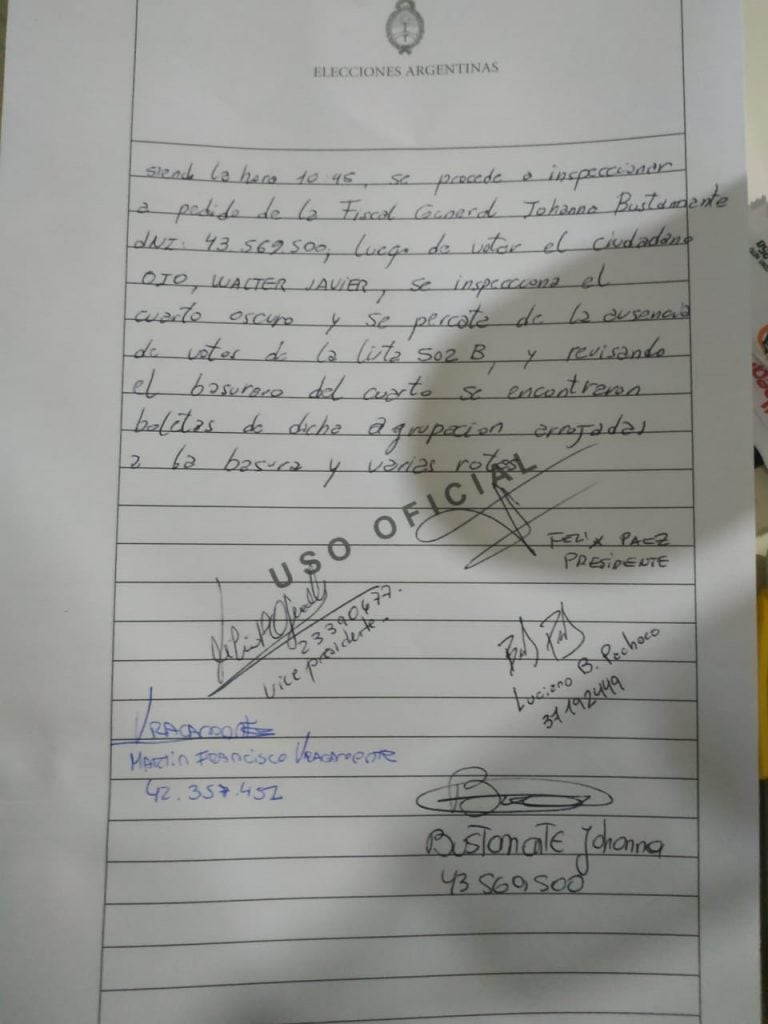 ELECCIONES ARGENTINAS
siendo la hora 10:45, se procede a inspeccionar
a pedido de la Fiscal General Johanna Bustamante
DNI: 43.569.500, luego de votar el ciudadano
OJO, WALTER JAVIER, se inspecciona el
cuarto oscuro y se percata de la ausencia
de votos de la lista 502 B, y revisando
el basurero del cuarto se encontraron
boletas de dicha agrupacion arrojadas
a la basura y varias rotas.
USO OFICIAL
FELIX PAEZ
PRESIDENTE
23390677.
Vice presidente
Luciano B. Pacheco
37192449
VRACAMONTE
MARTIN FRANCISCO VRACAMONTE
42.357.452
BUSTAMANTE Johanna
43 569.500